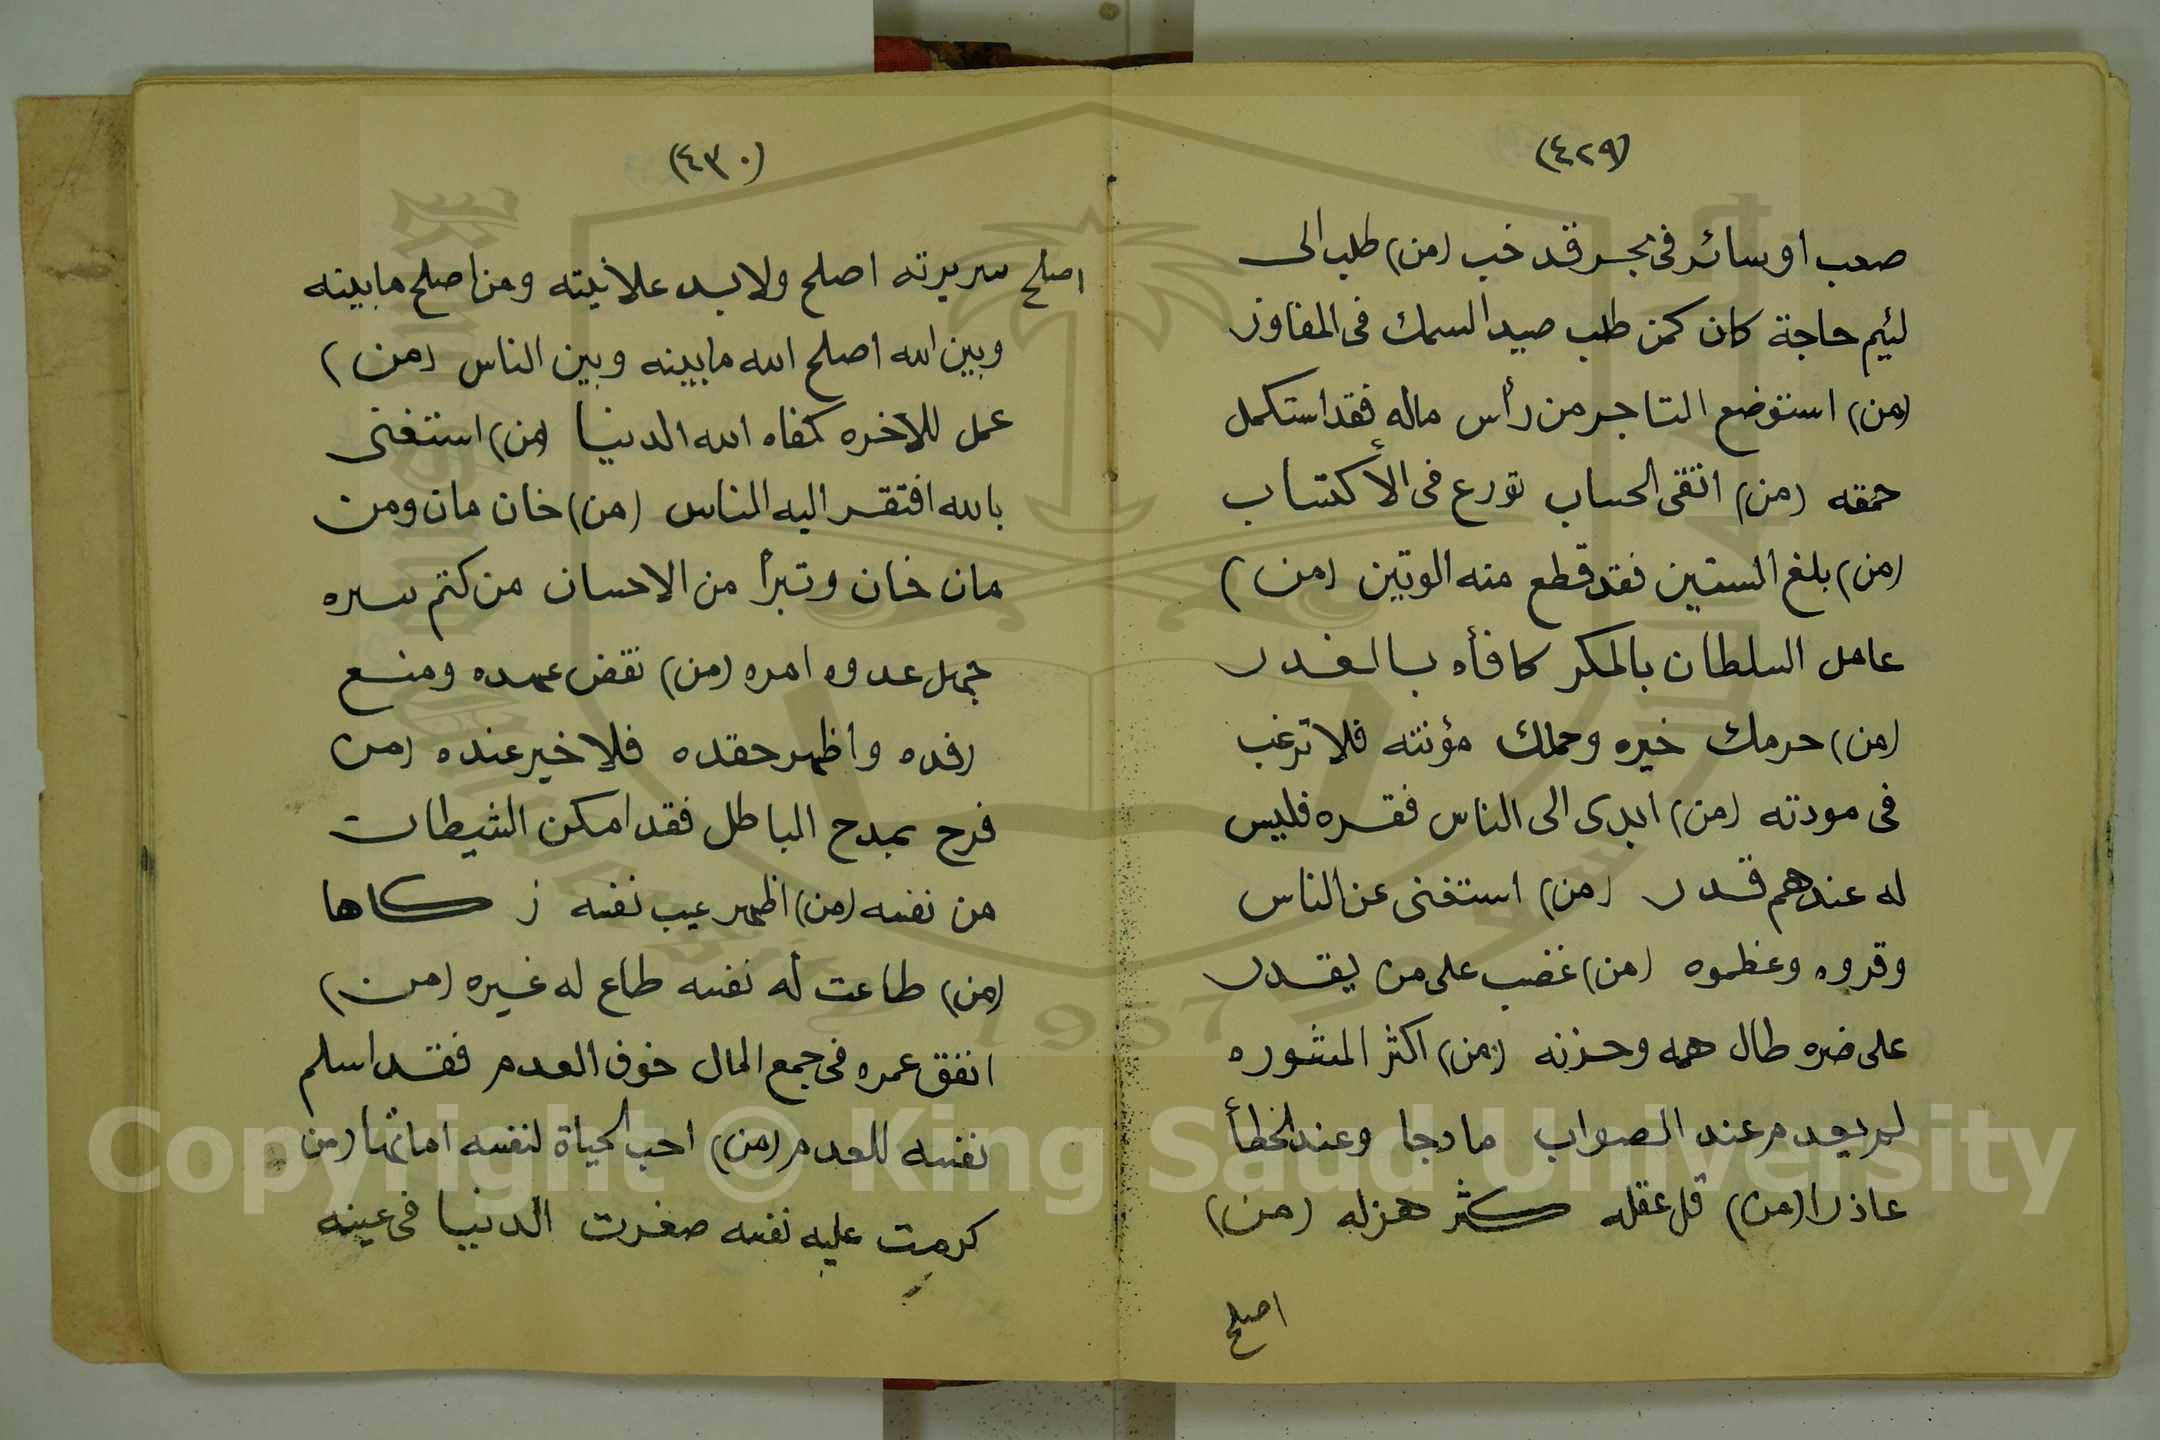 (٤٢٩)
صعب او سائر فى بحر قد خب (من) طلب الى
لئيم حاجة كان كمن طلب صيد السمك فى المفاوز
(من) استوضع التاجر من رأس ماله فقد استكمل
حمقه (من) اتقى الحساب تورع فى الأكتساب
(من) بلغ الستين فقد قطع منه الوتين (من)
عامل السلطان بالمكر كافأه بالغدر
(من) حرمك خيره وحملك مؤنته فلا ترغب
فى مودته (من) ابدى الى الناس فقره فليس
له عندهم قدر (من) استغنى عن الناس
وقروه وعظموه (من) غضب على من يقدر
على ضره طال همه وحزنه (من) اكثر المشوره
لم يعدم عند الصواب مادحا وعند الخطأ
عاذرا (من) قل عقله كثر هزله (من)
اصلح
(٤٣٠)
اصلح سريرته اصلح ولابد علانيته ومن اصلح مابينه
وبين الله اصلح الله مابينه وبين الناس (من)
عمل للاخره كفاه الله الدنيا (من) استغنى
بالله افتقر اليه الناس (من) خان مان ومن
مان خان وتبرأ من الاحسان من كتم سره
جهل عدوه امره (من) نقض عهده ومنع
رفده واظهر حقده فلا خير عنده (من
فرح بمدح الباطل فقد امكن الشيطان
من نفسه (من) اظهر عيب نفسه زكاها
(من) طاعت له نفسه طاع له غيره (من)
انفق عمره فى جمع المال خوف العدم فقد اسلم
نفسه للعدم (من) احب الحياة لنفسه اماتها (من
كرمت عليه نفسه صغرت الدنيا فى عينه
Copyright © King Saud University
1957